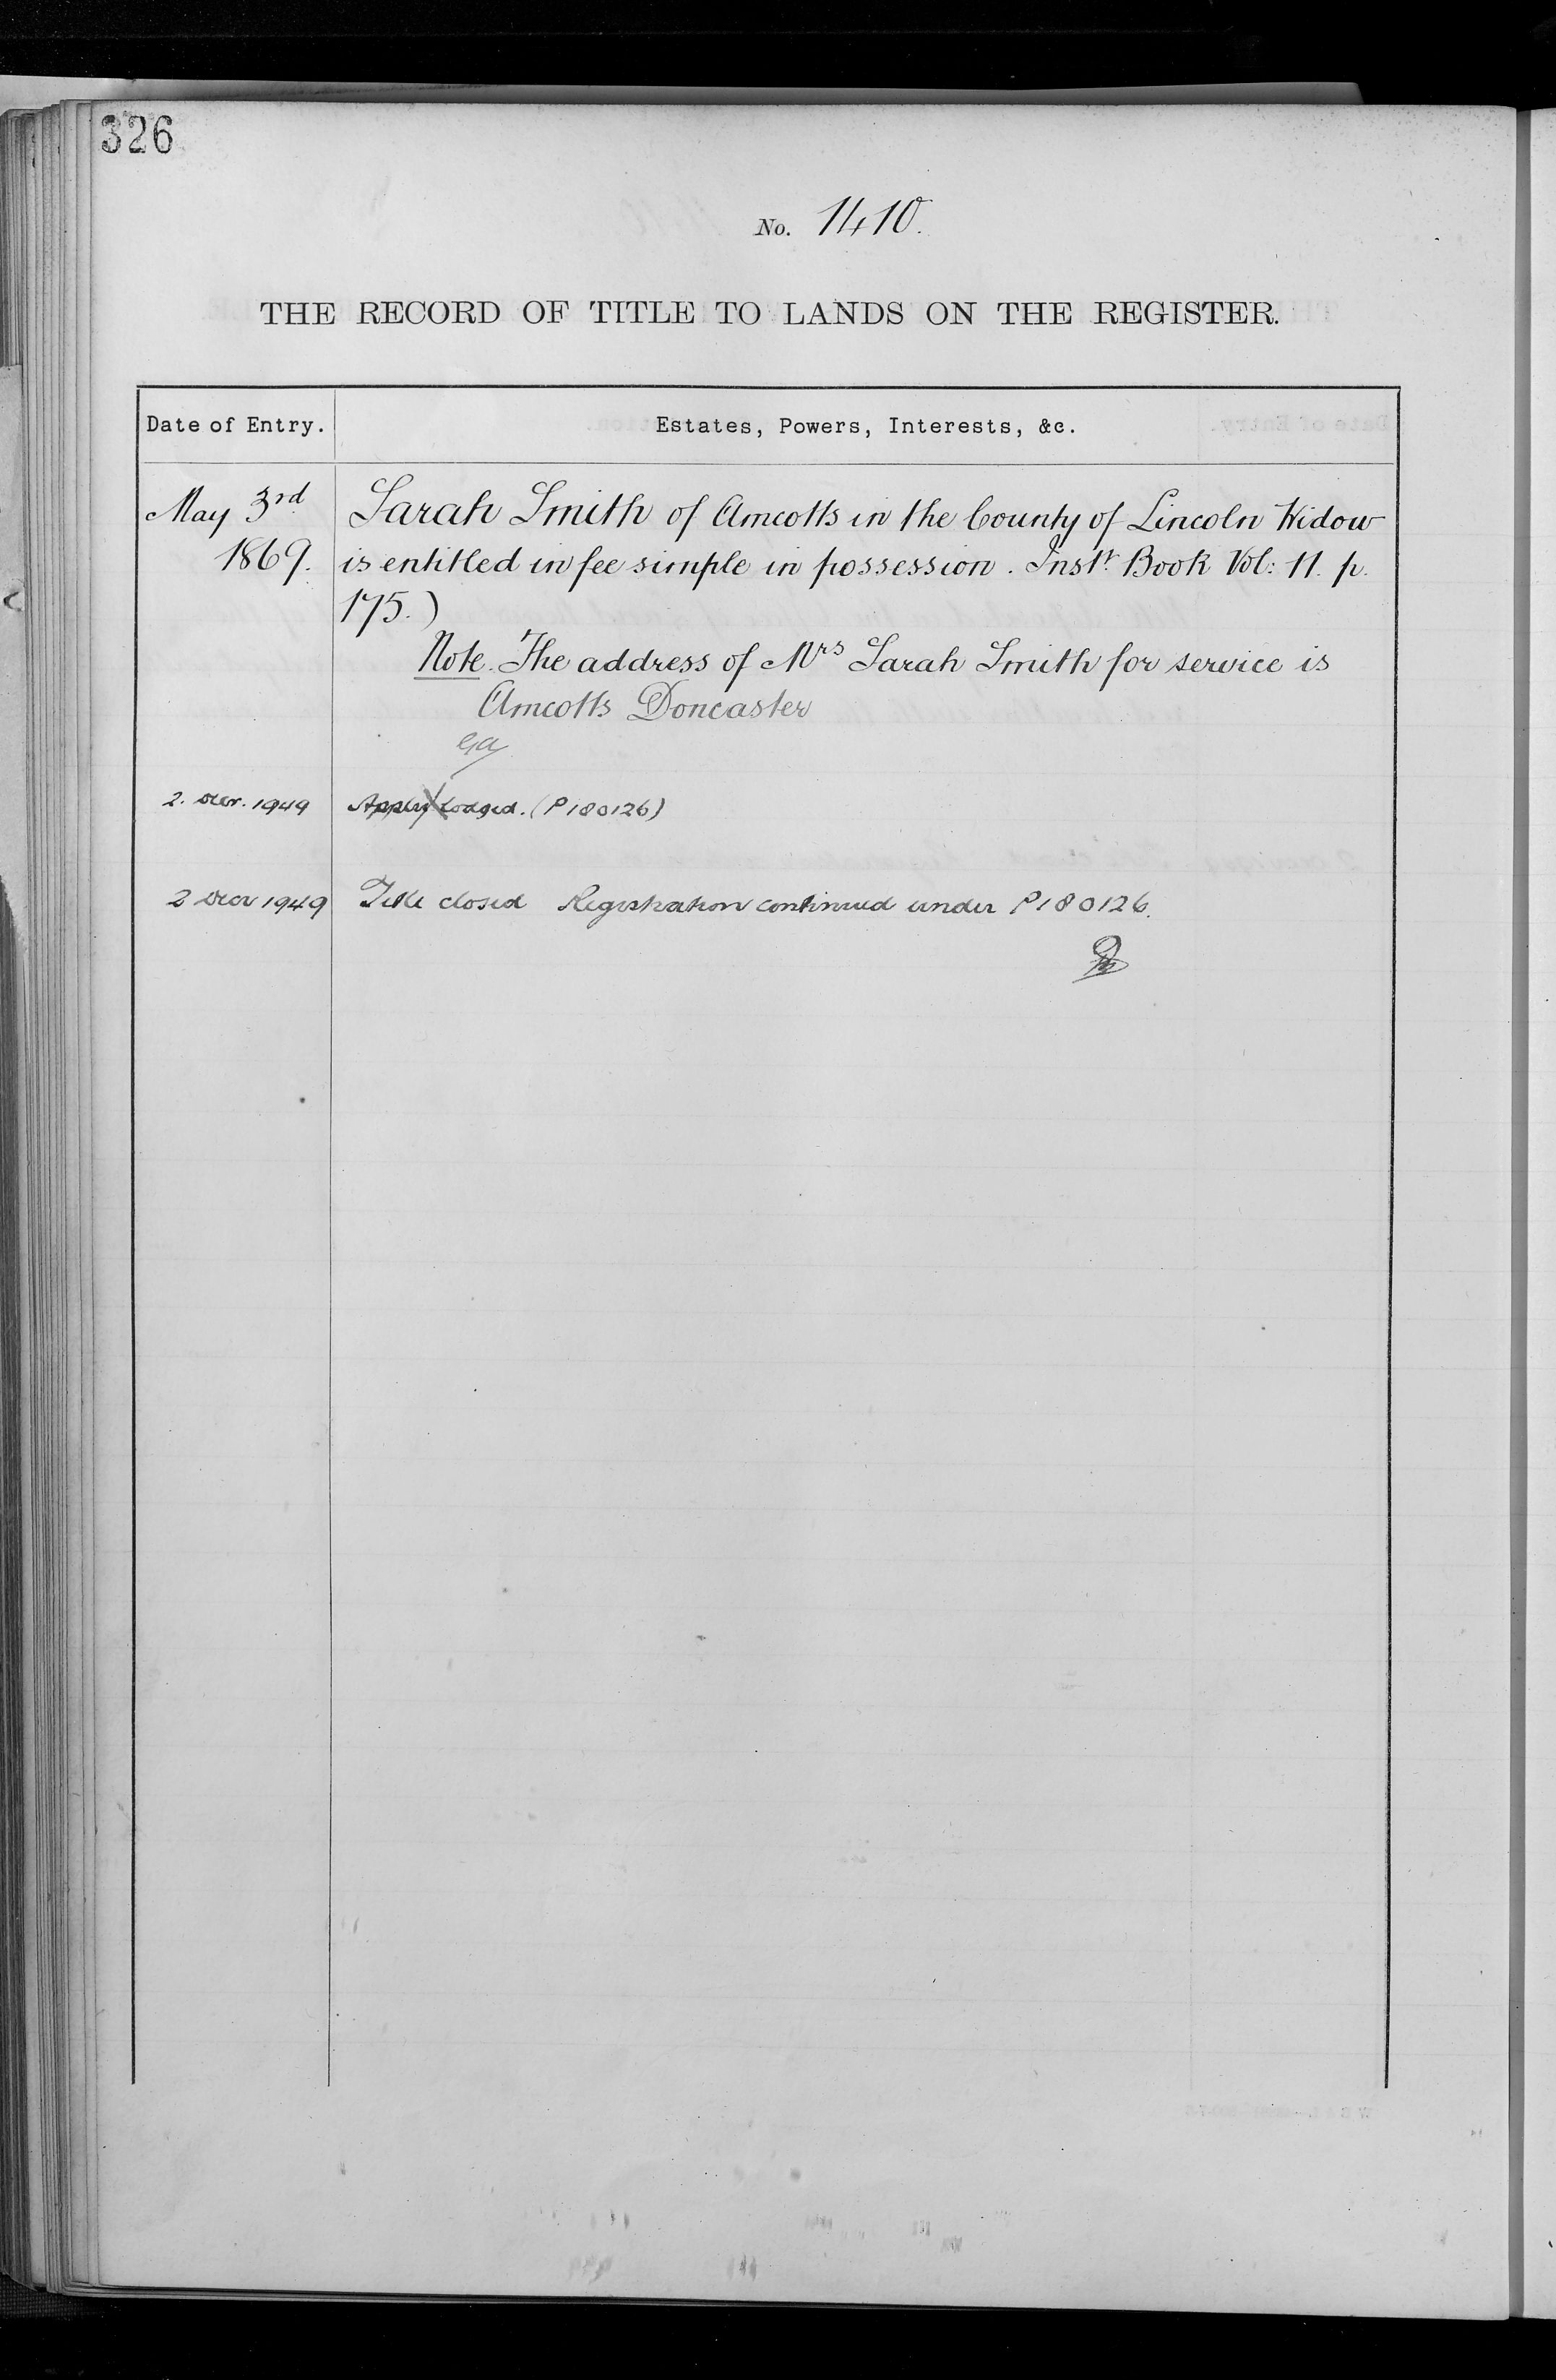 326
No. 1410.
THE RECORD OF TITLE TO LANDS ON THE REGISTER.
Date of Entry. Estates, Powers, Interests, &c.
May 3rd Sarah Smith of Amcotts in the County of Lincoln Widow
1869. is entitled in fee simple in possession. Instt. Book Vol: 11. p.
175.)
Note. The address of Mrs Sarah Smith for service is
Amcotts Doncaster
2. 1949 lodged. (P180126)
2 1949 Title closed Registration continued under P180126.